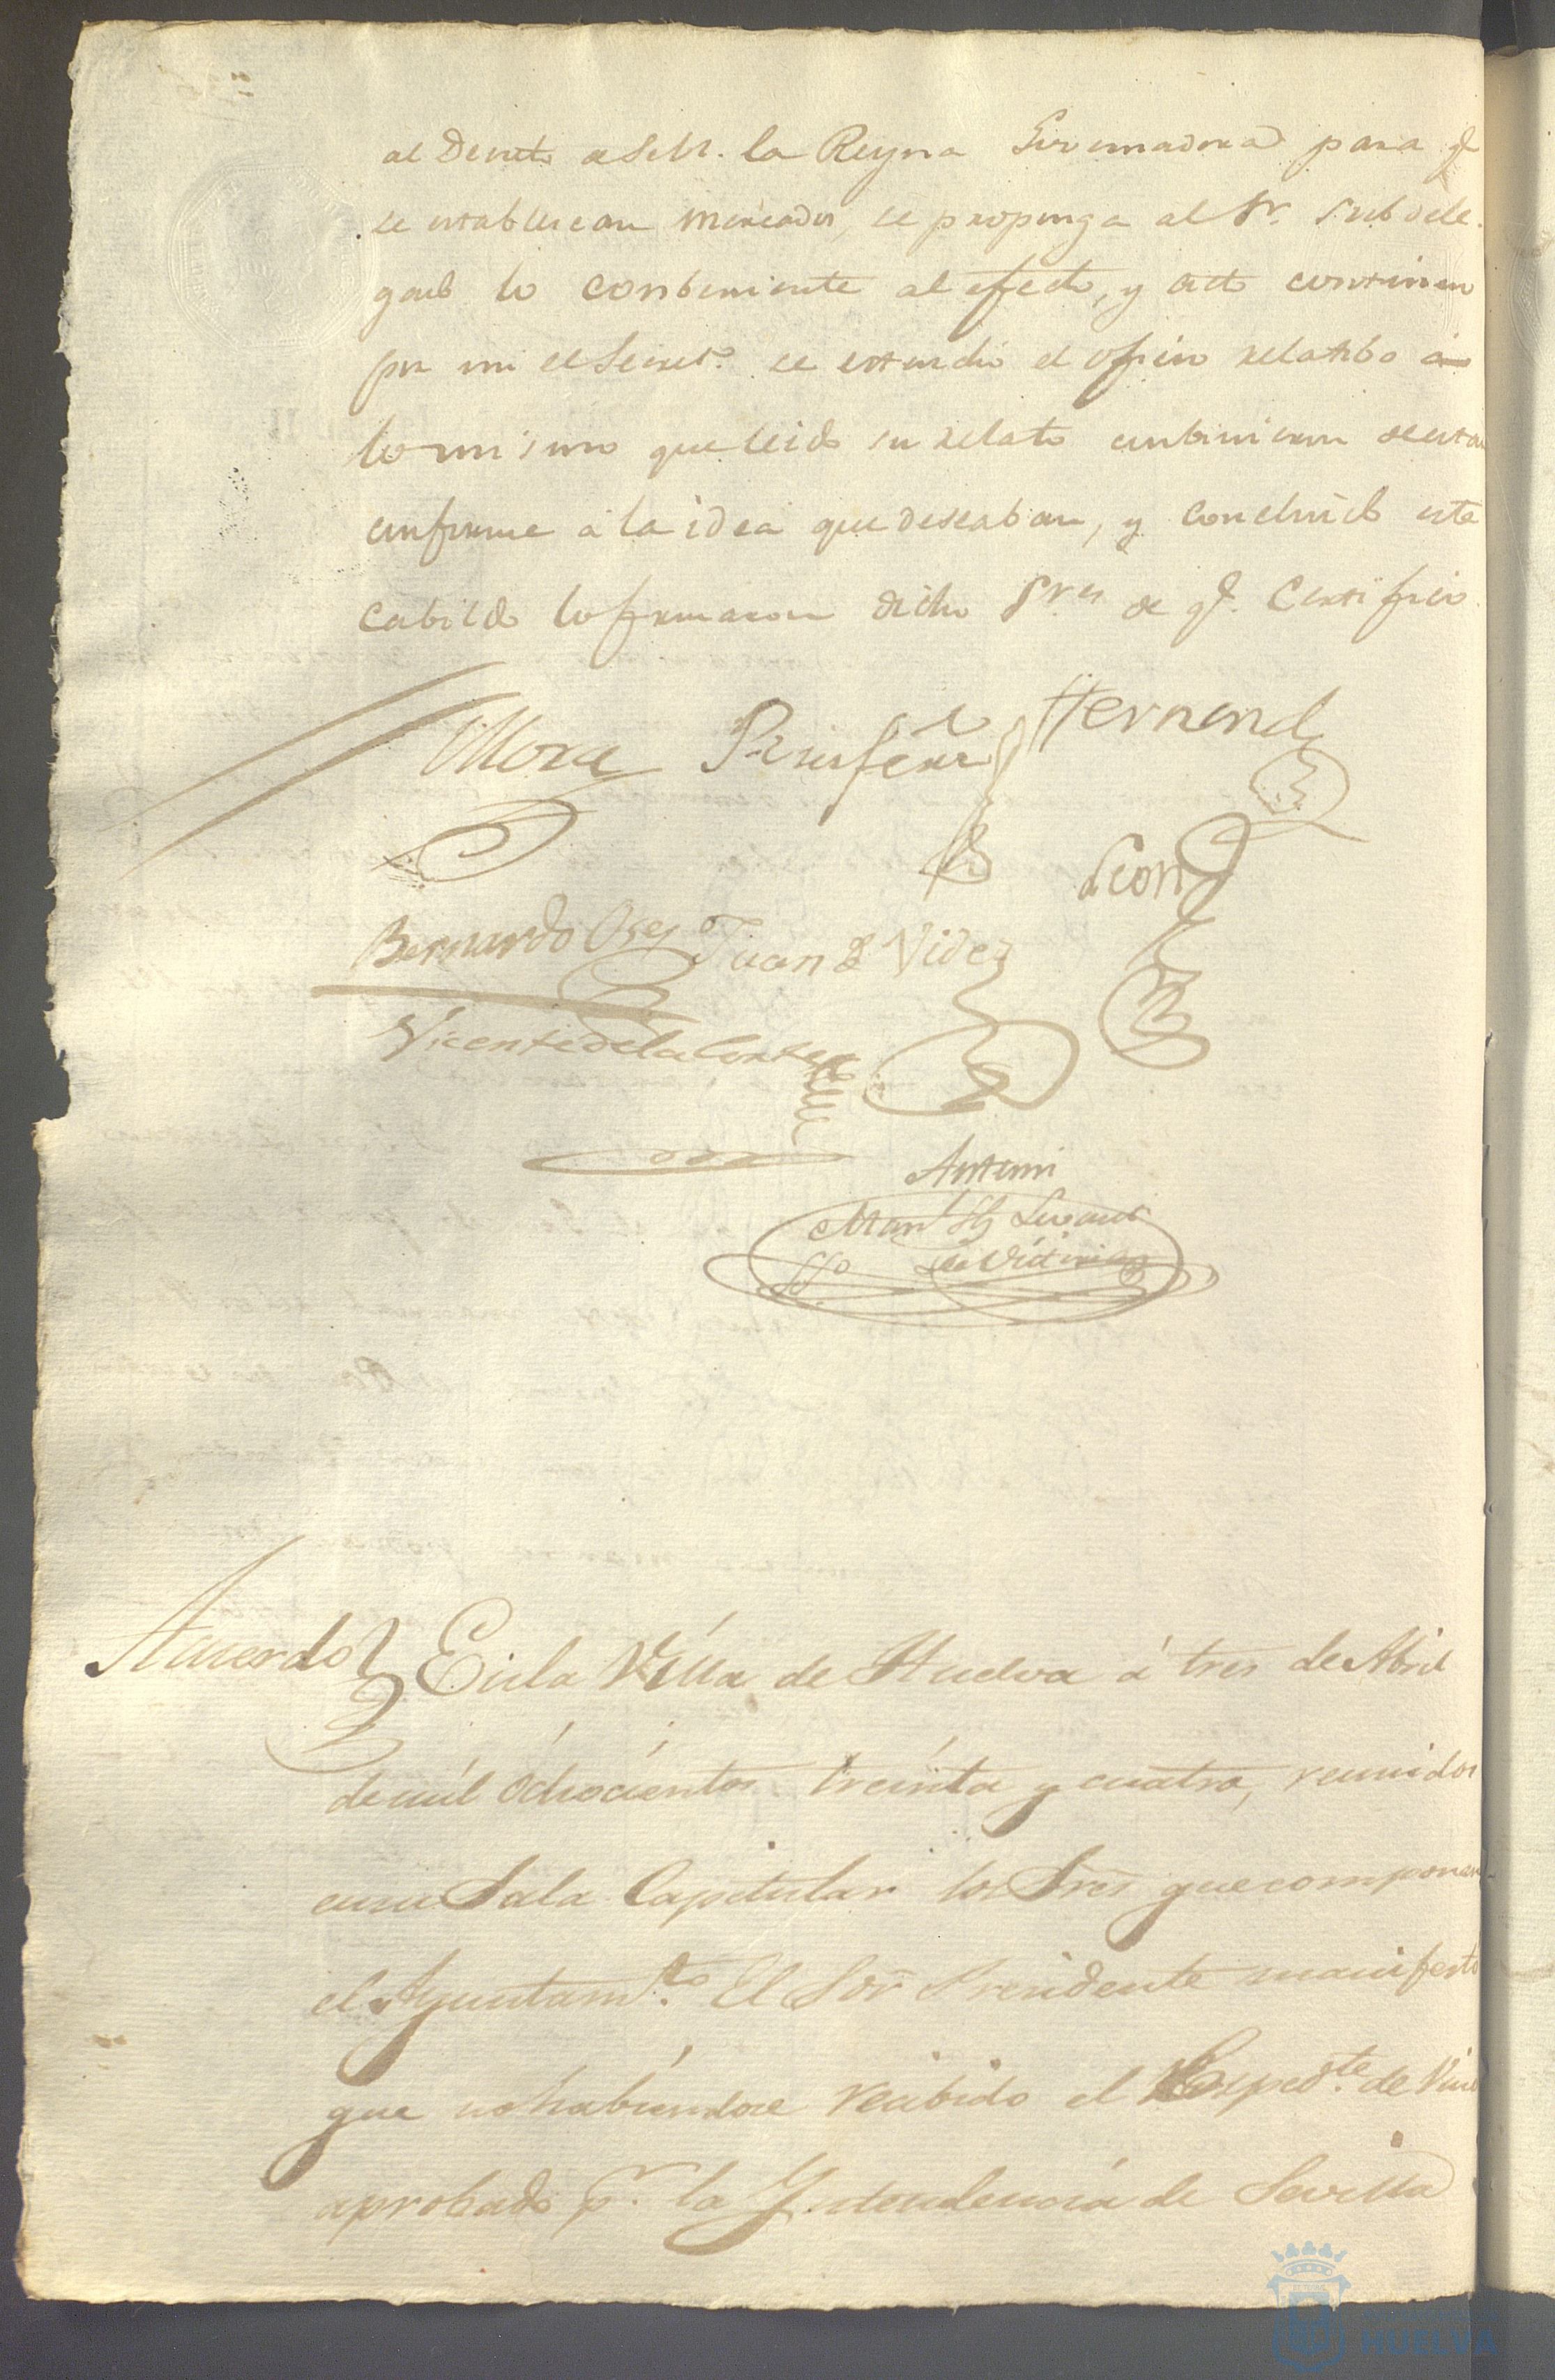 al Decreto de S. M. la Reyna Governadora para q.e
se establescan mercados, se proponga al Sr. Subdele-
gado lo conbeniente al efecto, y acto continuo
por mi el Secret.o se estendio el oficio relatibo á
lo mismo que leido su relato conbinieron de estar
conforme á la idea que deseaban, y concluido este
Cabildo lo firmaron dicho Sres de q.e Certifico
Mora
Hernand
Leon
Bernardo
Juan
Videz
Vicente de la Corte
Antemi
Man.l
Acuerdo
En la Villa de Huelva á tres de Abril
de mil ochocientos treinta y cuatro, reunidos
en su Sala Capitular los Sres que componen
el Ayuntam.to El Sor Presidente manifesto
que no habiendose recibido el Exped.te de
aprobado p.r la Yntendencia de Sevilla
HUELVA